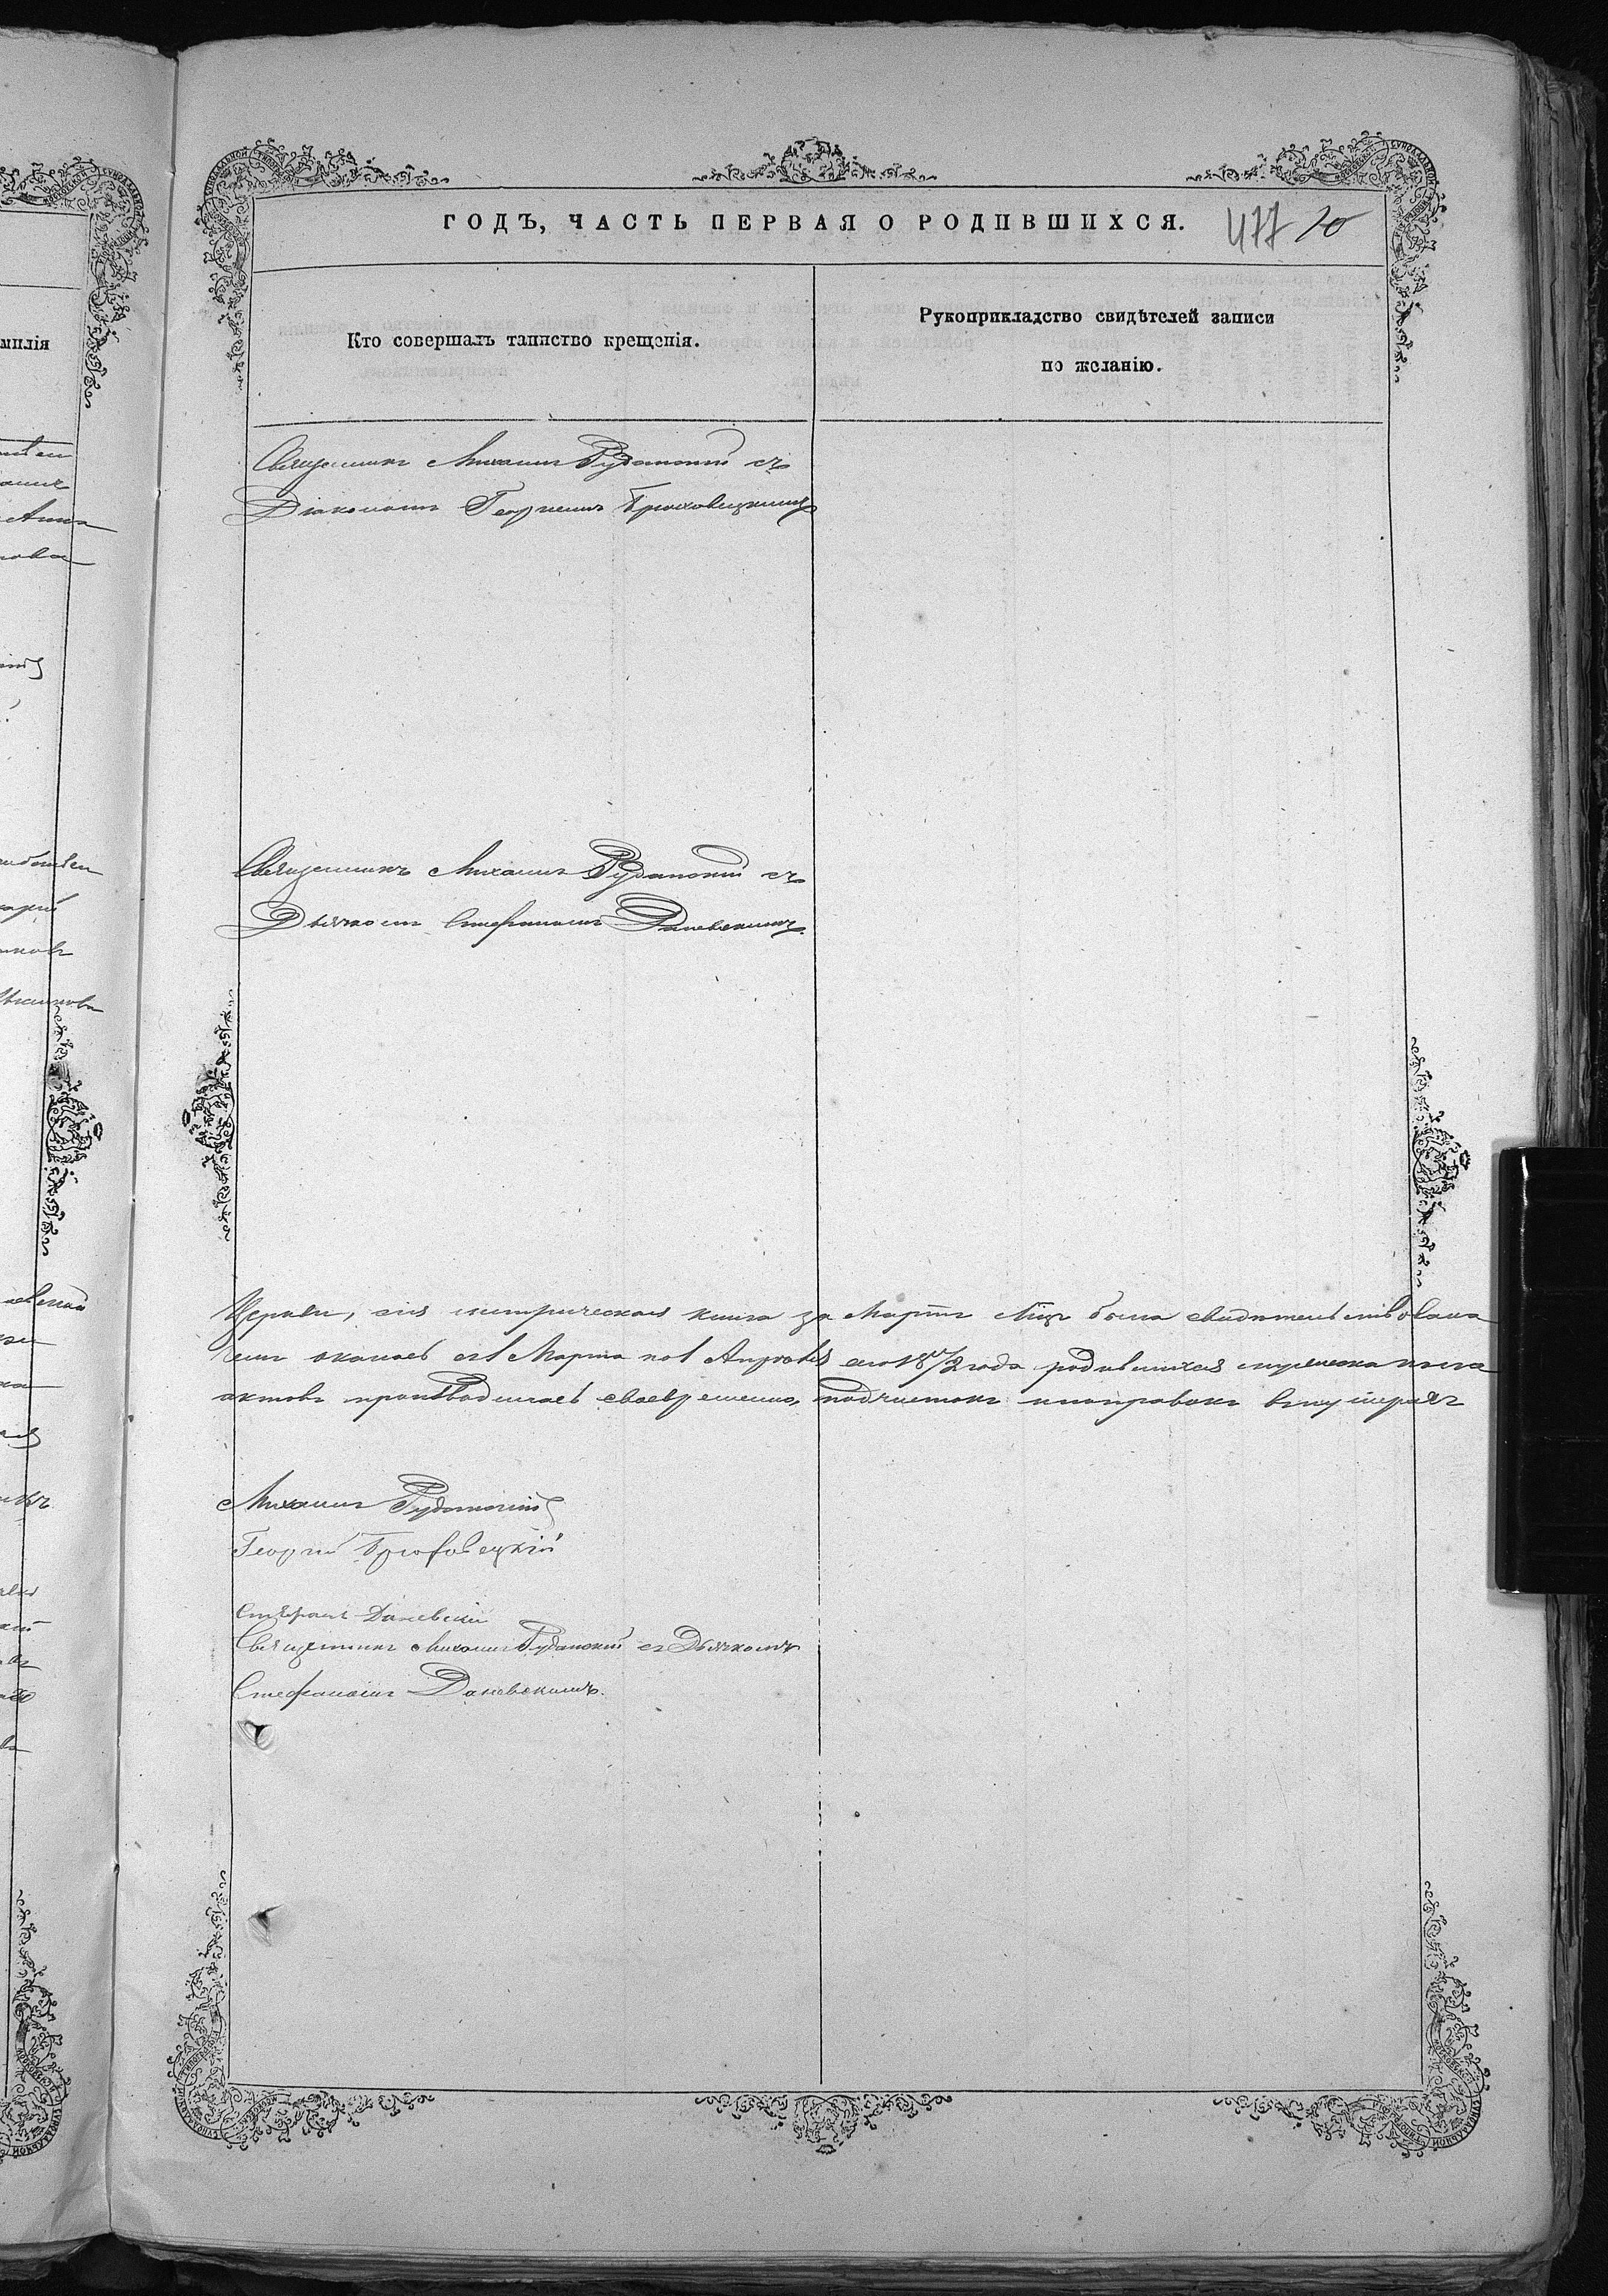 ГОДЪ, ЧАСТЬ ПЕРВАЯ О РОДИВШИХСЯ.
477 10
милія
Кто совершалъ таинство крещенія.
Рукоприкладство свидѣтелей записи
по желанію.
Священникъ Михаилъ Руданскій съ
Діакономъ Георгіемъ Брюховецкимъ
Анна
Священникъ Михаилъ Руданскій съ
Дьячкомъ Стефаномъ Даневскимъ.
Церкви, сія метрическая книга за Мартъ Мцъ была свидѣтельствована
оказаось съ 1 Марта по 1 Апрѣля сего 1872 года родившихся мужеска пола
актовъ производилась своевременно, подчистокъ и поправокъ
Михаилъ Руданскій
Георгій Брюховецкій
Стефанъ Даневскій
Священникъ Михаилъ Руданскій съ Дьячкомъ
Стефаномъ Даневскимъ.